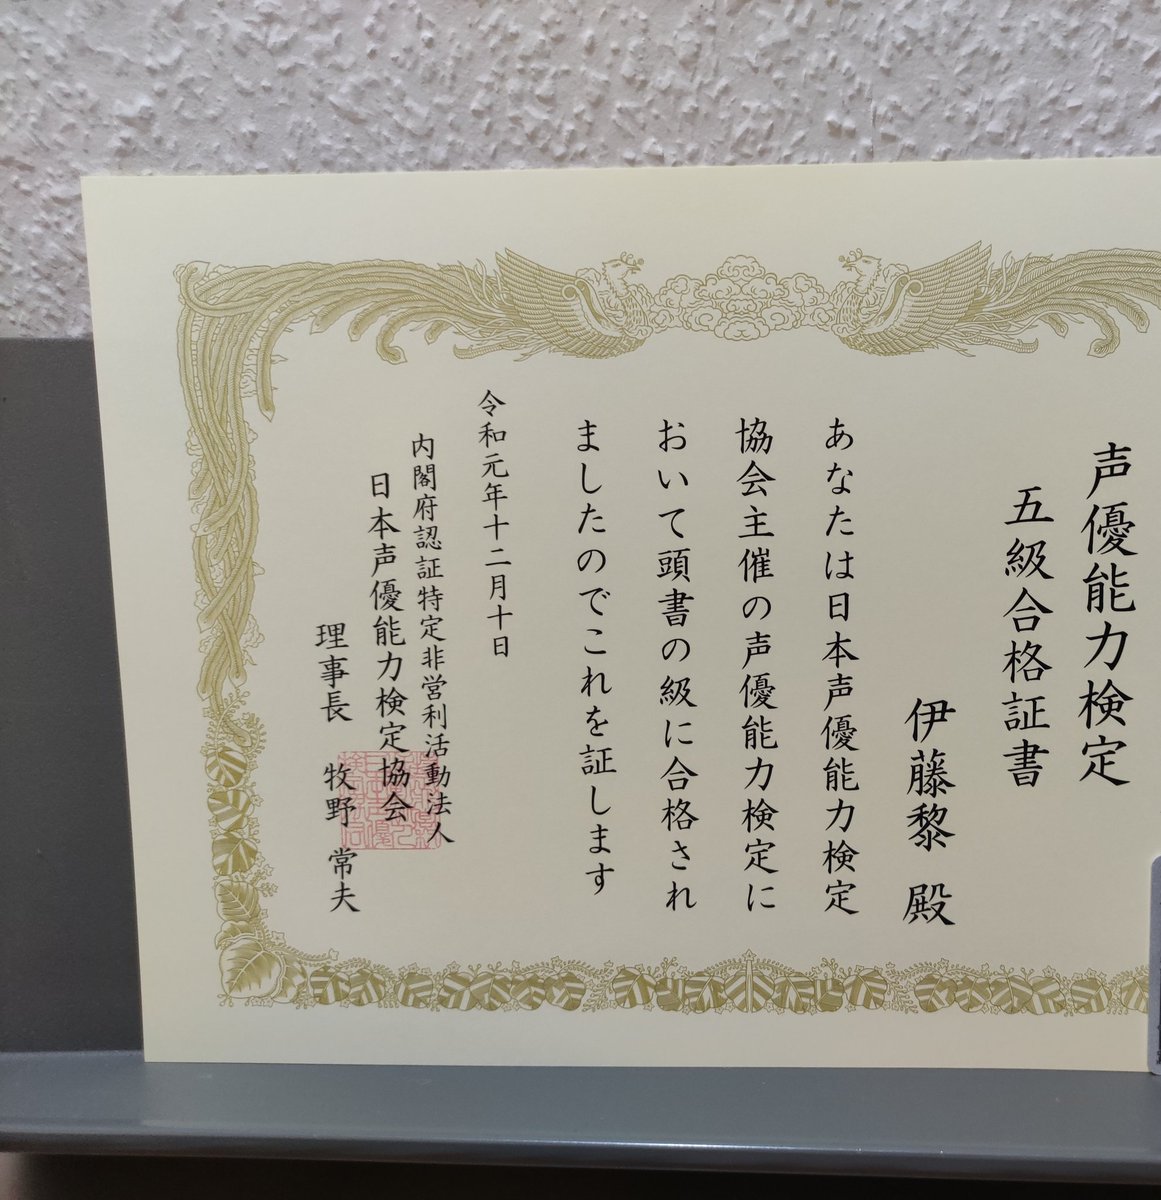 声優能力検定
五級合格証書
伊藤黎 殿
あなたは日本声優能力検定
協会主催の声優能力検定に
おいて頭書の級に合格され
ましたのでこれを証します
令和元年十二月十日
内閣府認証特定非営利活動法人
日本声優能力検定協会
理事長 牧野 常夫